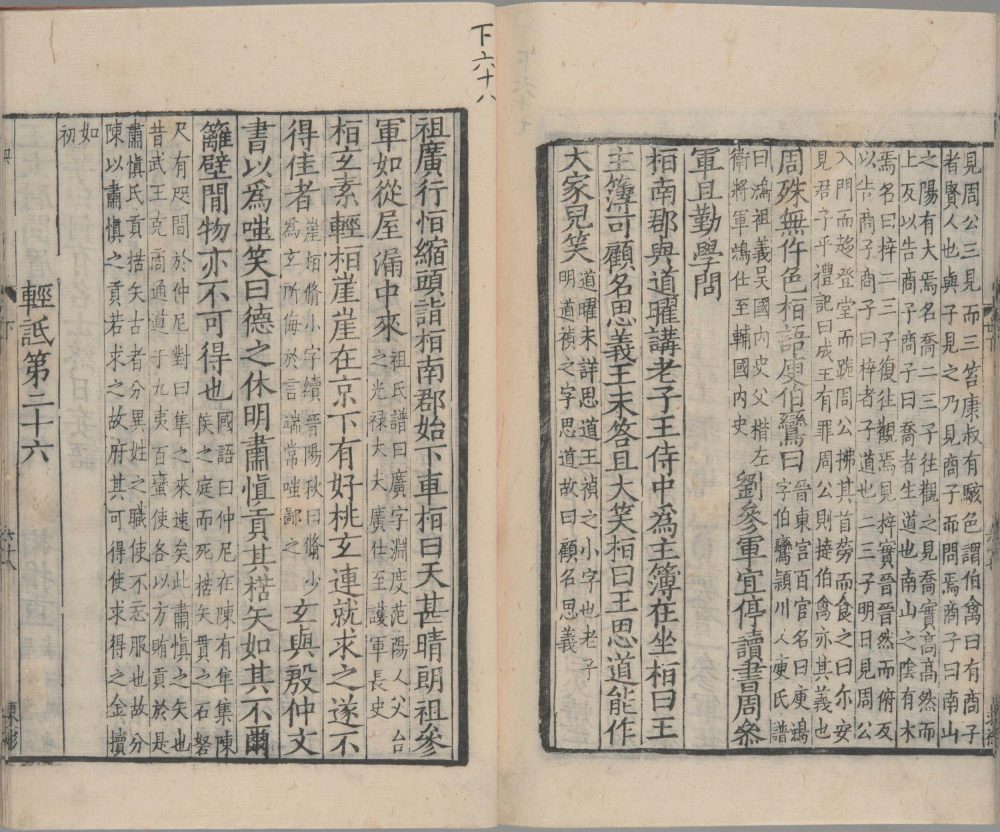 見周公三見而三笞康叔有駭色謂伯禽曰有商子
者賢人也與子見之乃見商子而問焉商子曰南山
之陽有大焉名喬二三子往觀之見喬實高高然而
上反以告商子商子曰喬者生道也南山之陰有木
焉名曰梓二三子復往觀焉見梓實晉晉然而俯反
以告商子商子曰梓者子道也二三子明日見周公
入門而趍登堂而跪周公拂其首勞而食之曰尓安
見君子乎禮記曰成王有罪周公則撻伯禽亦其義也
周殊無忤色桓語庾伯鸞曰晉東宮百官名曰庾鴻字伯鸞潁川人庾氏譜
曰鴻祖義吳國內史父楷左衛將軍鴻仕至輔國內史劉參軍宜停讀書周參
軍且勤學問
桓南郡與道曜講老子王侍中爲主簿在坐桓曰王
主簿可顧名思義王未答且大笑桓曰王思道能作
大家兒笑道曜未詳思道王禎之小字也老子明道禎之字思道故曰顧名思義
下六十八
祖廣行恒縮頭詣桓南郡始下車桓曰天甚晴朗祖參
軍如從屋漏中來祖氏譜曰廣字淵度范陽人父台之光祿大夫廣仕至護軍長史
桓玄素輕桓崖崖在京下有好桃玄連就求之遂不
得佳者崖桓脩小字續晉陽秋曰脩少爲玄所侮於言端常嗤鄙之玄與殷仲文
書以爲嗤笑曰德之休明肅慎貢其楛矢如其不爾
籬壁間物亦不可得也國語曰仲尼在陳有隼集陳侯之庭而死楛矢貫之石砮
尺有咫問於仲尼對曰隼之來速矣此肅慎之矢也
昔武王克商通道于九夷百蠻使各以方賄貢於是
肅慎氏貢楛矢古者分異姓之職使不忘服也故分
陳以肅慎之貢若求之故府其可得使求得之金櫝
如
初
輕詆第二十六